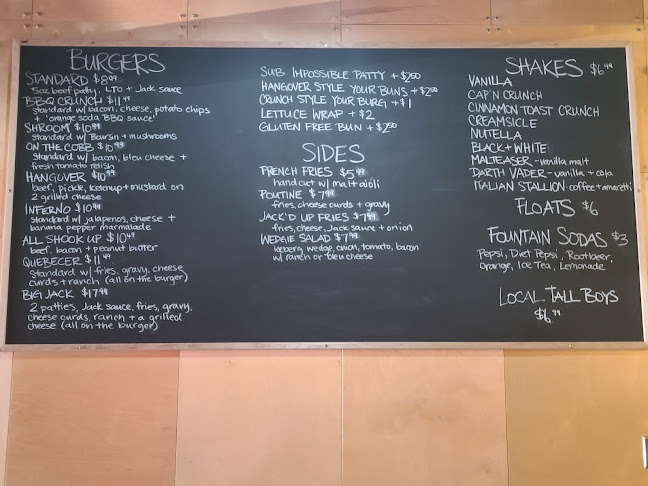 BURGERS
STANDARD $8.99
5oz beef patty, LTO + Jack sauce
BBQ CRUNCH $11.49
standard w/ bacon, cheese, potato chips
+ 'orange soda BBQ sauce'
SHROOM $10.99
standard w/ Boursin + mushrooms
ON THE COBB $10.99
standard w/ bacon, bleu cheese +
fresh tomato relish
HANGOVER $10.99
beef, pickle, ketchup + mustard on
2 grilled cheese
INFERNO $10.99
standard w/ jalapenos, cheese +
banana pepper marmalade
ALL SHOOK UP $10.49
beef, bacon + peanut butter
QUEBECER $11.49
standard w/ fries, gravy, cheese
curds + ranch (all on the burger)
BIG JACK $17.99
2 patties, Jack sauce, fries, gravy,
cheese curds, ranch + a grilled
cheese (all on the burger)
SUB IMPOSSIBLE PATTY + $2.50
HANGOVER STYLE YOUR BUNS + $2.00
CRUNCH STYLE YOUR BURG + $1
LETTUCE WRAP + $2
GLUTEN FREE BUN + $2.50
SIDES
FRENCH FRIES $5.99
hand cut w/ malt aioli
POUTINE $7.99
fries, cheese curds + gravy
JACK'D UP FRIES $7.99
fries, cheese, Jack sauce + onion
WEDGIE SALAD $7.99
iceberg wedge, onion, tomato, bacon
w/ ranch or bleu cheese
SHAKES $6.49
VANILLA
CAP'N CRUNCH
CINNAMON TOAST CRUNCH
CREAMSICLE
NUTELLA
BLACK + WHITE
MALTEASER - vanilla malt
DARTH VADER - vanilla + cola
ITALIAN STALLION - coffee + amaretti
FLOATS $6
FOUNTAIN SODAS $3
Pepsi, Diet Pepsi, Rootbeer,
Orange, Ice Tea, Lemonade
LOCAL TALL BOYS
$6.99